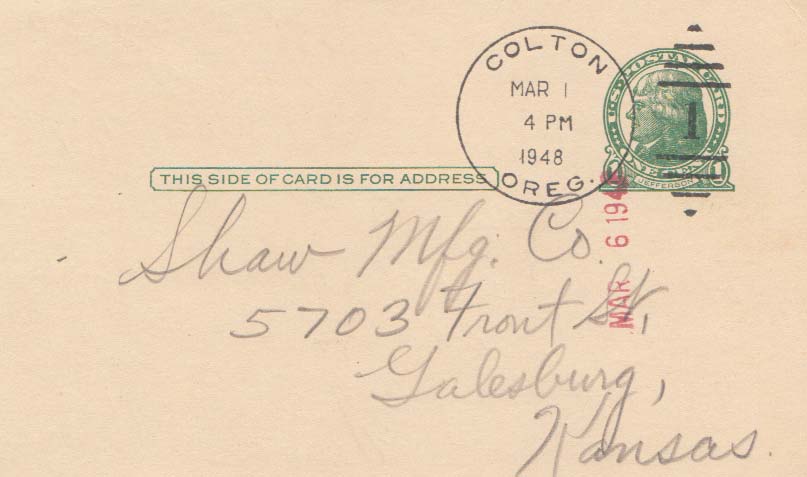 COLTON
MAR 1
4 PM
1948
OREG.
U.S. POSTAL CARD
1
ONE CENT
JEFFERSON
1
THIS SIDE OF CARD IS FOR ADDRESS
MAR 6 194
Shaw Mfg. Co.
5703 Front St,
Galesburg,
Kansas.